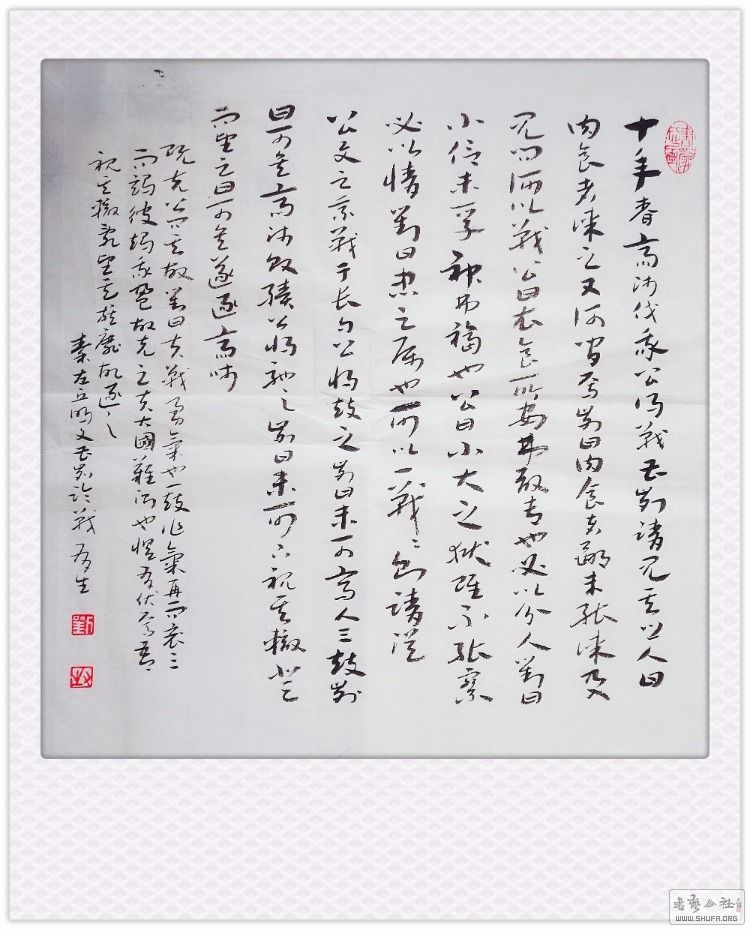 十年春齊師伐我公將戰曹劌請見其乡人曰
肉食者谋之又何間焉劌曰肉食者鄙未能谋乃入
見問何以戰公曰衣食所安弗敢专也必以分人對曰
小信未孚神弗福也公曰小大之獄雖不能察
必以情對曰忠之属也可以一戰戰則請從
公与之乘戰于長勺公將鼓之劌曰未可齊人三鼓劌
曰可矣齊師敗績公將馳之劌曰未可下視其轍登
而望之曰可矣遂逐齊師
既克公問其故對曰夫戰勇氣也一鼓作氣再而衰三
而竭彼竭我盈故克之夫大國難測也懼有伏焉吾
視其轍亂望其旗靡故逐之
左丘明文曹劌论戰 生
劉
书艺公社
WWW.SHUFA.ORG